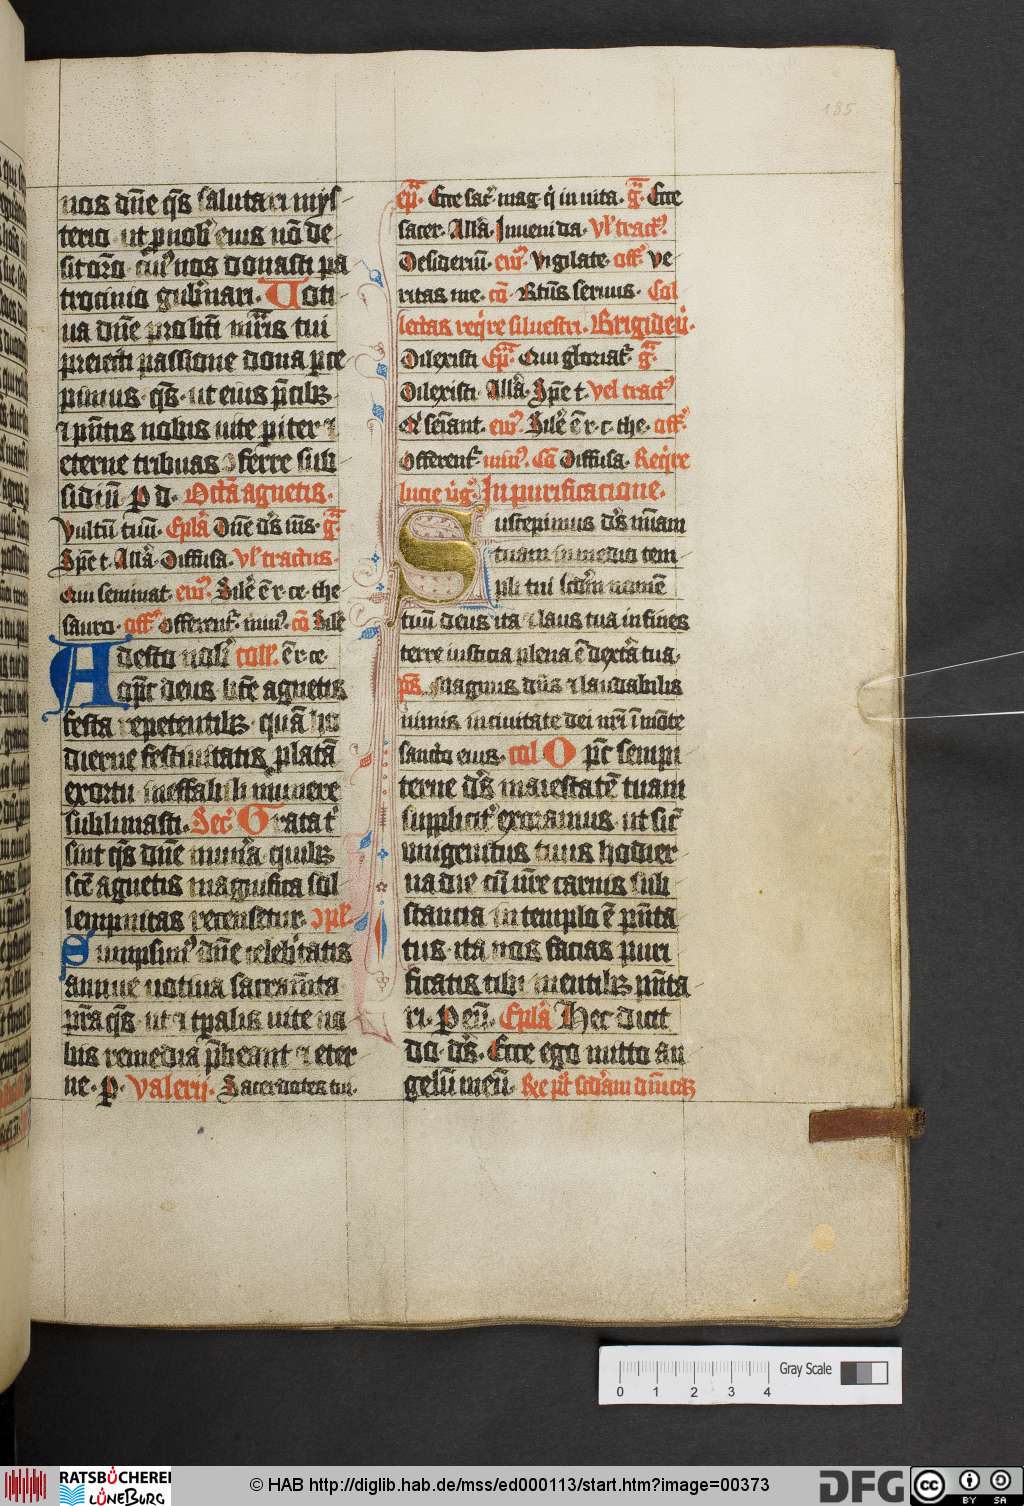 185
nos dn̄e q̄s salutari mys
terio ut
sitorō nos donasti pa
trocinio gub̄nari. Uoti
ua dn̄e tui
preiecti passione dona
pimus q̄s ut eius
nobis uite p̄iter ⁊
eterne tribuas ⁊ ferre sub
sidiū P d. Octā agnetis.
Vultū tuū. Ep̄la Dn̄e
Sp̄e t. All̄a Diffusa. vl̄ tractus.
Qui seminat. Sil̄e ē r. ce. the
sauro. Offerent̄. cō Sil̄e
Adesto nob̄ coll. ē r. ce.
deus agnetis
festa repetentib; quā ho
dierne festiuitatis platā
exortu ineffabili munere
sublimasti. Secr̄ Grata t
sint q̄s dn̄e mun̄a quib;
sc̄e agnetis magnifica sol
lempnitas recensetur.
Sumpsim⁹ dn̄e celebitatis
annue uotiua sacram̄ta
p̄ra q̄s. ut ⁊ t̄palis uite no
bis remedia p̄beant ⁊ eter
ne. P. Valerij. Sacerdotes tui.
Ep̄. Ecce sac̄ mag. q̄ in uita. g̃. Ecce
sacer. All̄a. Inueni da. Vl̄ tract⁹.
Desideriū. ew̄. vigilate. off̄ ve
ritas me. cō. Bt̄us seruus. Col
lectas req̄re siluestri. Brigide ū.
Dilexisti Ep̄. Qui gloriat̄. g̃
Dilexisti. All̄a. Sp̄e t. vel tract⁹
ew̄. Sil̄e ē r. c. the. off̄.
Offerent̄ min⁹. Cō Diffusa. Req̄re
lucie ū̄g. In purificatione.
Suscepimus d̄s miām
tuam in medio tem
pli tui sc̄dm nomē
tuū deus ita ⁊ laus tua in fines
terre iusticia plena ē dext̄a tua.
p̄s Magnus dn̄s ⁊ laudabilis
nimis in ciuitate dei nr̄i ī mōte
sancto eius. col O p̄c sempi
terne d̄s maiestatē tuam
supplicit̄ exoramus ut sic̄
unigenitus tuus hodier
na die cū nr̄e carnis sub
stancia in templo ē p̄nta
tus. ita nos facias puri
ficatis tibi mentib; p̄nta
ri. P eū. Ep̄la Hec dicit
do. d̄s. Ecce ego mitto an
gelū meū.
0 1 2 3 4 Gray Scale
RATSBÜCHEREI
LÜNEBURG
© HAB http://diglib.hab.de/mss/ed000113/start.htm?image=00373
DFG
cc BY SA